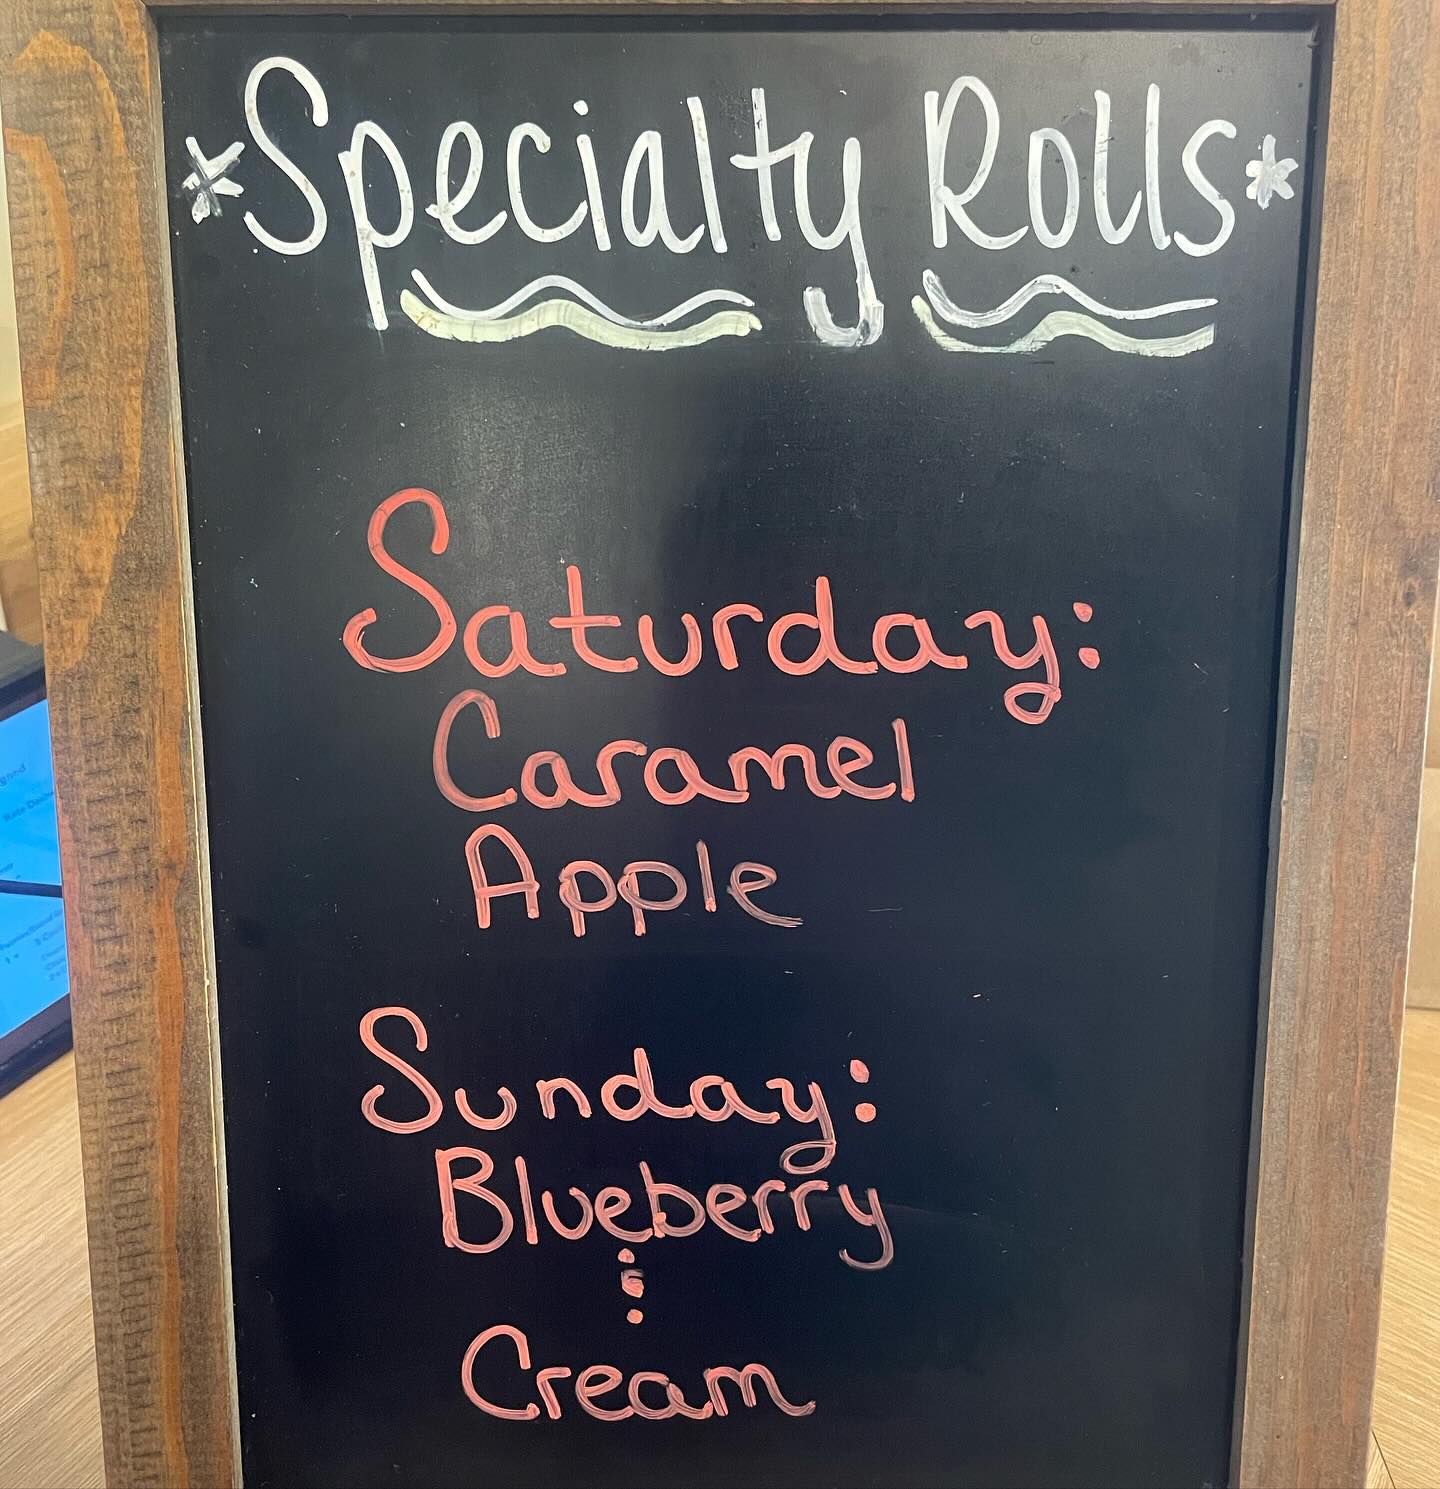 *Specialty Rolls*
Saturday:
Caramel
Apple
Sunday:
Blueberry
&
Cream